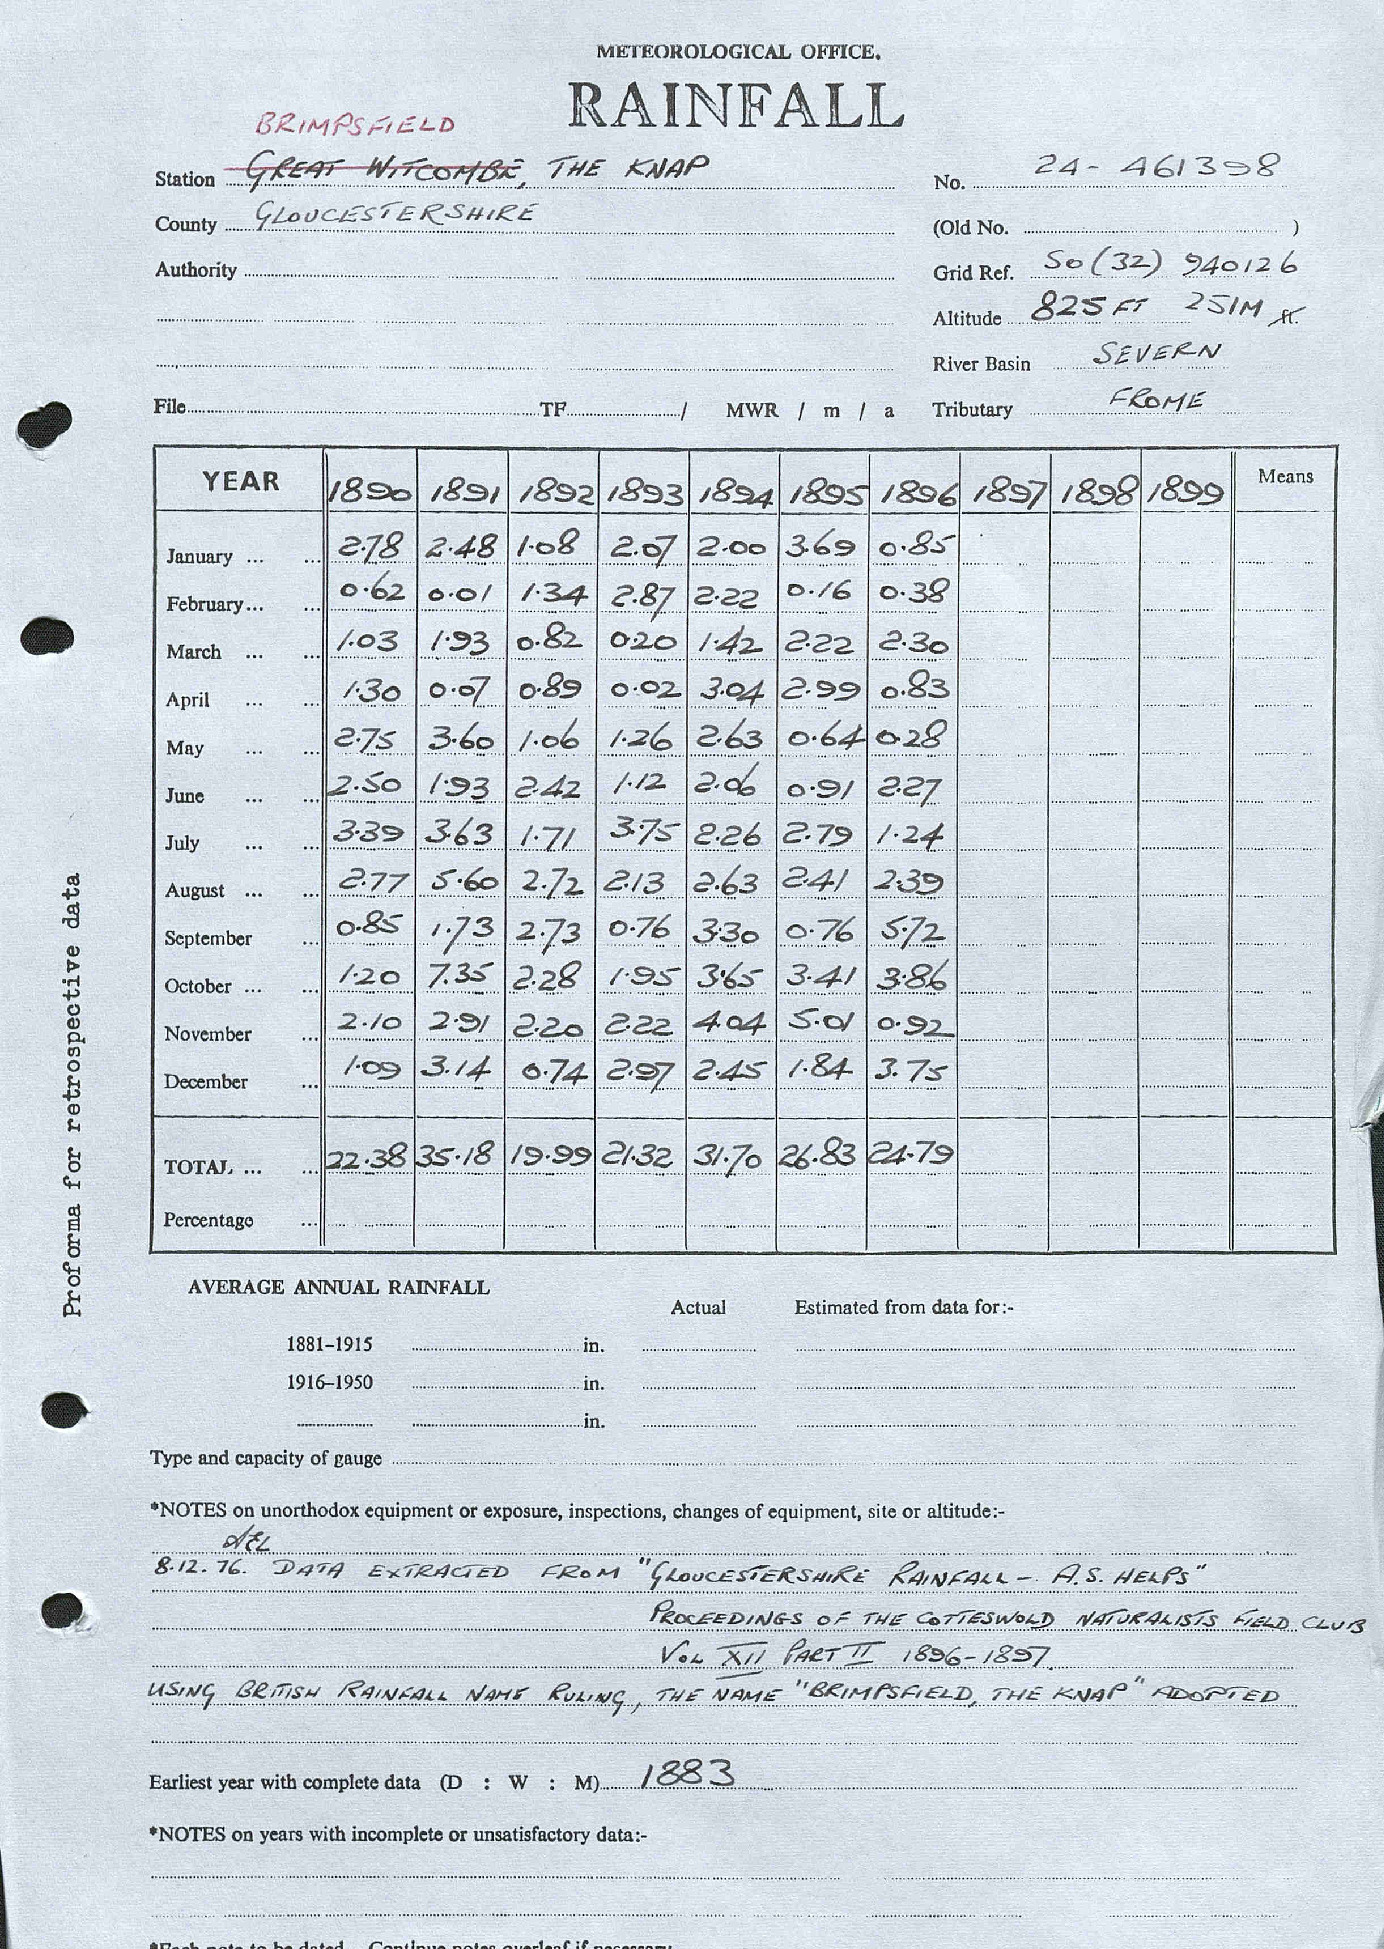 METEOROLOGICAL OFFICE.
RAINFALL
BRIMPSFIELD
Station GREAT WITCOMBE, THE KNAP
No. 24- 461398
County GLOUCESTERSHIRE
(Old No. )
Authority
Grid Ref. SO (32) 940126
Altitude 825 FT 251M ft.
River Basin SEVERN
File TF / MWR / m / a Tributary FROME
YEAR 1890 1891 1892 1893 1894 1895 1896 1897 1898 1899 Means
January ... ... 2.78 2.48 1.08 2.07 2.00 3.69 0.85
February... ... 0.62 0.01 1.34 2.87 2.22 0.16 0.38
March ... ... 1.03 1.93 0.82 0.20 1.42 2.22 2.30
April ... ... 1.30 0.07 0.89 0.02 3.04 2.99 0.83
May ... ... 2.75 3.60 1.06 1.26 2.63 0.64 0.28
June ... ... 2.50 1.93 2.42 1.12 2.06 0.91 2.27
July ... ... 3.39 3.63 1.71 3.75 2.26 2.79 1.24
August ... ... 2.77 5.60 2.72 2.13 2.63 2.41 2.39
September ... 0.85 1.73 2.73 0.76 3.30 0.76 5.72
October ... ... 1.20 7.35 2.28 1.95 3.65 3.41 3.86
November ... 2.10 2.91 2.20 2.22 4.04 5.01 0.92
December ... 1.09 3.14 0.74 2.97 2.45 1.84 3.75
TOTAL ... ... 22.38 35.18 19.99 21.32 31.70 26.83 24.79
Percentage ...
Proforma for retrospective data
AVERAGE ANNUAL RAINFALL
Actual Estimated from data for:-
1881–1915 in.
1916–1950 in.
in.
Type and capacity of gauge
*NOTES on unorthodox equipment or exposure, inspections, changes of equipment, site or altitude:-
AEL
8.12.76. DATA EXTRACTED FROM "GLOUCESTERSHIRE RAINFALL - A.S. HELPS"
PROCEEDINGS OF THE COTTESWOLD NATURALISTS FIELD CLUB
VOL XII PART II 1896-1897.
USING BRITISH RAINFALL NAME RULING, THE NAME "BRIMPSFIELD, THE KNAP" ADOPTED
Earliest year with complete data (D : W : M) 1883
*NOTES on years with incomplete or unsatisfactory data:-
*Each note to be dated. Continue notes overleaf if necessary.